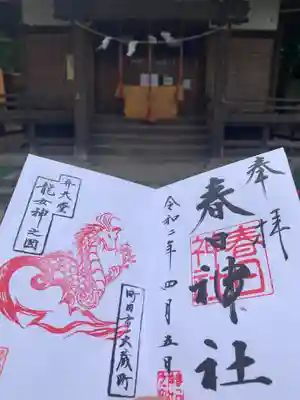 奉拝
春日神社
春日
神社
令和二年四月五日
弁天堂
龍女神之図
町田市大蔵町